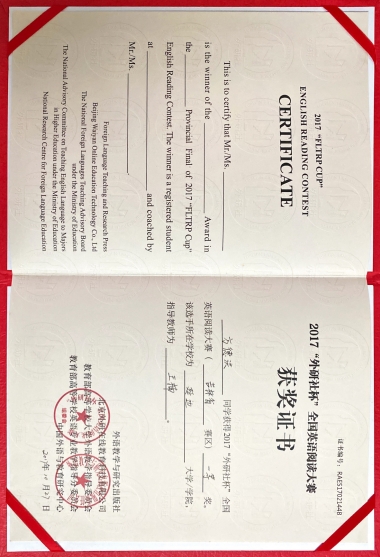 2017 "FLTRP CUP"
ENGLISH READING CONTEST
CERTIFICATE
This is to certify that Mr./Ms.
is the winner of the Award in
the Provincial Final of 2017 "FLTRP Cup"
English Reading Contest. The winner is a registered student
at and coached by
Mr./Ms.
Foreign Language Teaching and Research Press
Beijing Waiyan Online Education Technology Co., Ltd
The National Foreign Languages Teaching Advisory Board
under the Ministry of Education
The National Advisory Committee on Teaching English Language to Majors
in Higher Education under the Ministry of Education
National Research Centre for Foreign Language Education
证书编号: RAES17021448
2017 "外研社杯" 全国英语阅读大赛
获奖证书
同学获得2017 "外研社杯" 全国
英语阅读大赛( 吉林省 赛区) 一等 奖。
该选手所在学校为 大学/学院,
指导教师为 。
外语教学与研究出版社
北京外研在线教育科技有限公司
教育部高等学校大学外语教学指导委员会
教育部高等学校英语专业教学指导分委员会
中国外语与教育研究中心